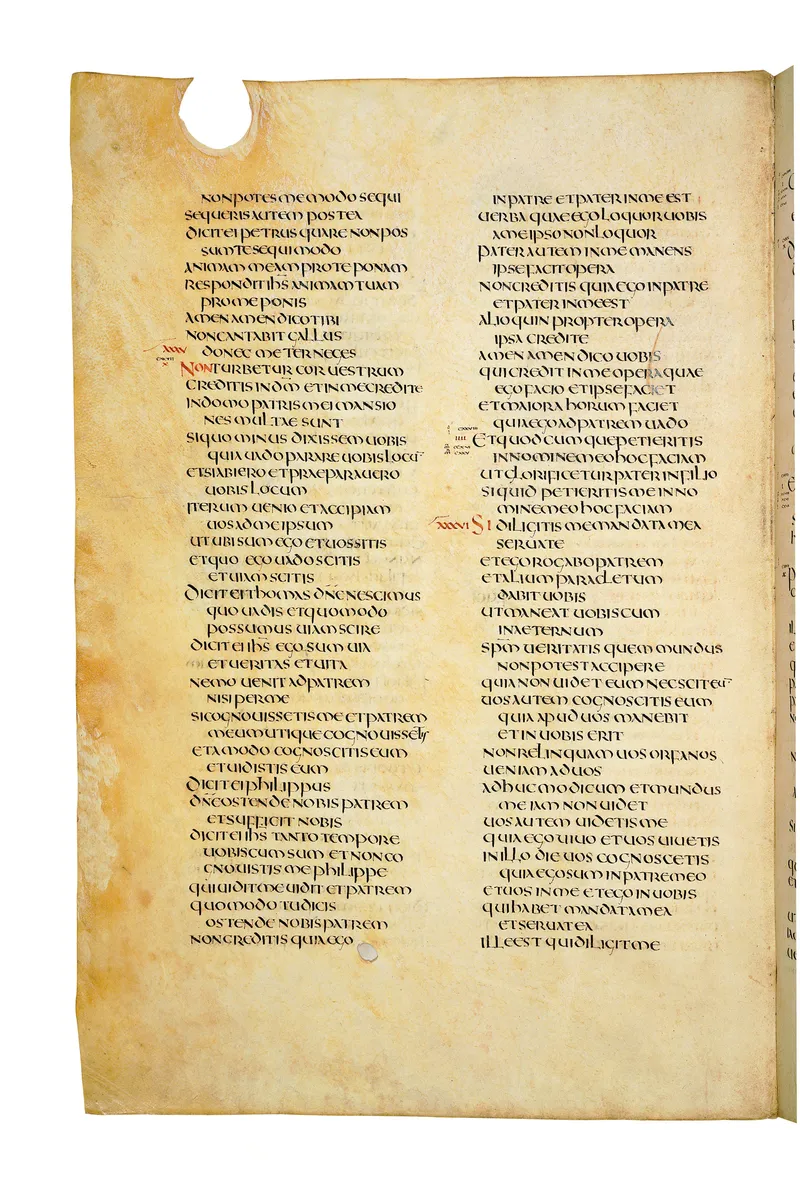 NON POTES ME MODO SEQUI
SEQUERIS AUTEM POSTEA
DICIT EI PETRUS QUARE NON POS
SUM TE SEQUI MODO
ANIMAM MEAM PRO TE PONAM
RESPONDIT IHS ANIMAM TUAM
PRO ME PONIS
AMEN AMEN DICO TIBI
NON CANTABIT GALLUS
XXXV DONEC ME TER NEGES
NON TURBETUR COR UESTRUM
CREDITIS IN DM ET IN ME CREDITE
IN DOMO PATRIS MEI MANSIO
NES MULTAE SUNT
SI QUO MINUS DIXISSEM UOBIS
QUIA UADO PARARE UOBIS LOCU
ET SI ABIERO ET PRAEPARAUERO
UOBIS LOCUM
ITERUM UENIO ET ACCIPIAM
UOS AD ME IPSUM
UT UBI SUM EGO ET UOS SITIS
ET QUO EGO UADO SCITIS
ET UIAM SCITIS
DICIT EI THOMAS DNE NESCIMUS
QUO UADIS ET QUOMODO
POSSUMUS UIAM SCIRE
DICIT EI IHS EGO SUM UIA
ET UERITAS ET UITA
NEMO UENIT AD PATREM
NISI PER ME
SI COGNOUISSETIS ME ET PATREM
MEUM UTIQUE COGNOUISSETIS
ET AMODO COGNOSCITIS EUM
ET UIDISTIS EUM
DICIT EI PHILIPPUS
DNE OSTENDE NOBIS PATREM
ET SUFFICIT NOBIS
DICIT EI IHS TANTO TEMPORE
UOBISCUM SUM ET NON CO
GNOUISTIS ME PHILIPPE
QUI UIDIT ME UIDIT ET PATREM
QUOMODO TU DICIS
OSTENDE NOBIS PATREM
NON CREDITIS QUIA EGO
IN PATRE ET PATER IN ME EST
UERBA QUAE EGO LOQUOR UOBIS
A ME IPSO NON LOQUOR
PATER AUTEM IN ME MANENS
IPSE FACIT OPERA
NON CREDITIS QUIA EGO IN PATRE
ET PATER IN ME EST
ALIOQUIN PROPTER OPERA
IPSA CREDITE
AMEN AMEN DICO UOBIS
QUI CREDIT IN ME OPERA QUAE
EGO FACIO ET IPSE FACIET
ET MAIORA HORUM FACIET
QUIA EGO AD PATREM UADO
ET QUODCUMQUE PETIERITIS
IN NOMINE MEO HOC FACIAM
UT GLORIFICETUR PATER IN FILIO
SI QUID PETIERITIS ME IN NO
MINE MEO HOC FACIAM
XXXVI SI DILIGITIS ME MANDATA MEA
SERUATE
ET EGO ROGABO PATREM
ET ALIUM PARACLETUM
DABIT UOBIS
UT MANEAT UOBISCUM
IN AETERNUM
SPM UERITATIS QUEM MUNDUS
NON POTEST ACCIPERE
QUIA NON UIDET EUM NEC SCIT EU
UOS AUTEM COGNOSCITIS EUM
QUIA APUD UOS MANEBIT
ET IN UOBIS ERIT
NON RELINQUAM UOS ORFANOS
UENIAM AD UOS
ADHUC MODICUM ET MUNDUS
ME IAM NON UIDET
UOS AUTEM UIDETIS ME
QUIA EGO UIUO ET UOS UIUETIS
IN ILLO DIE UOS COGNOSCETIS
QUIA EGO SUM IN PATRE MEO
ET UOS IN ME ET EGO IN UOBIS
QUI HABET MANDATA MEA
ET SERUAT EA
ILLE EST QUI DILIGIT ME